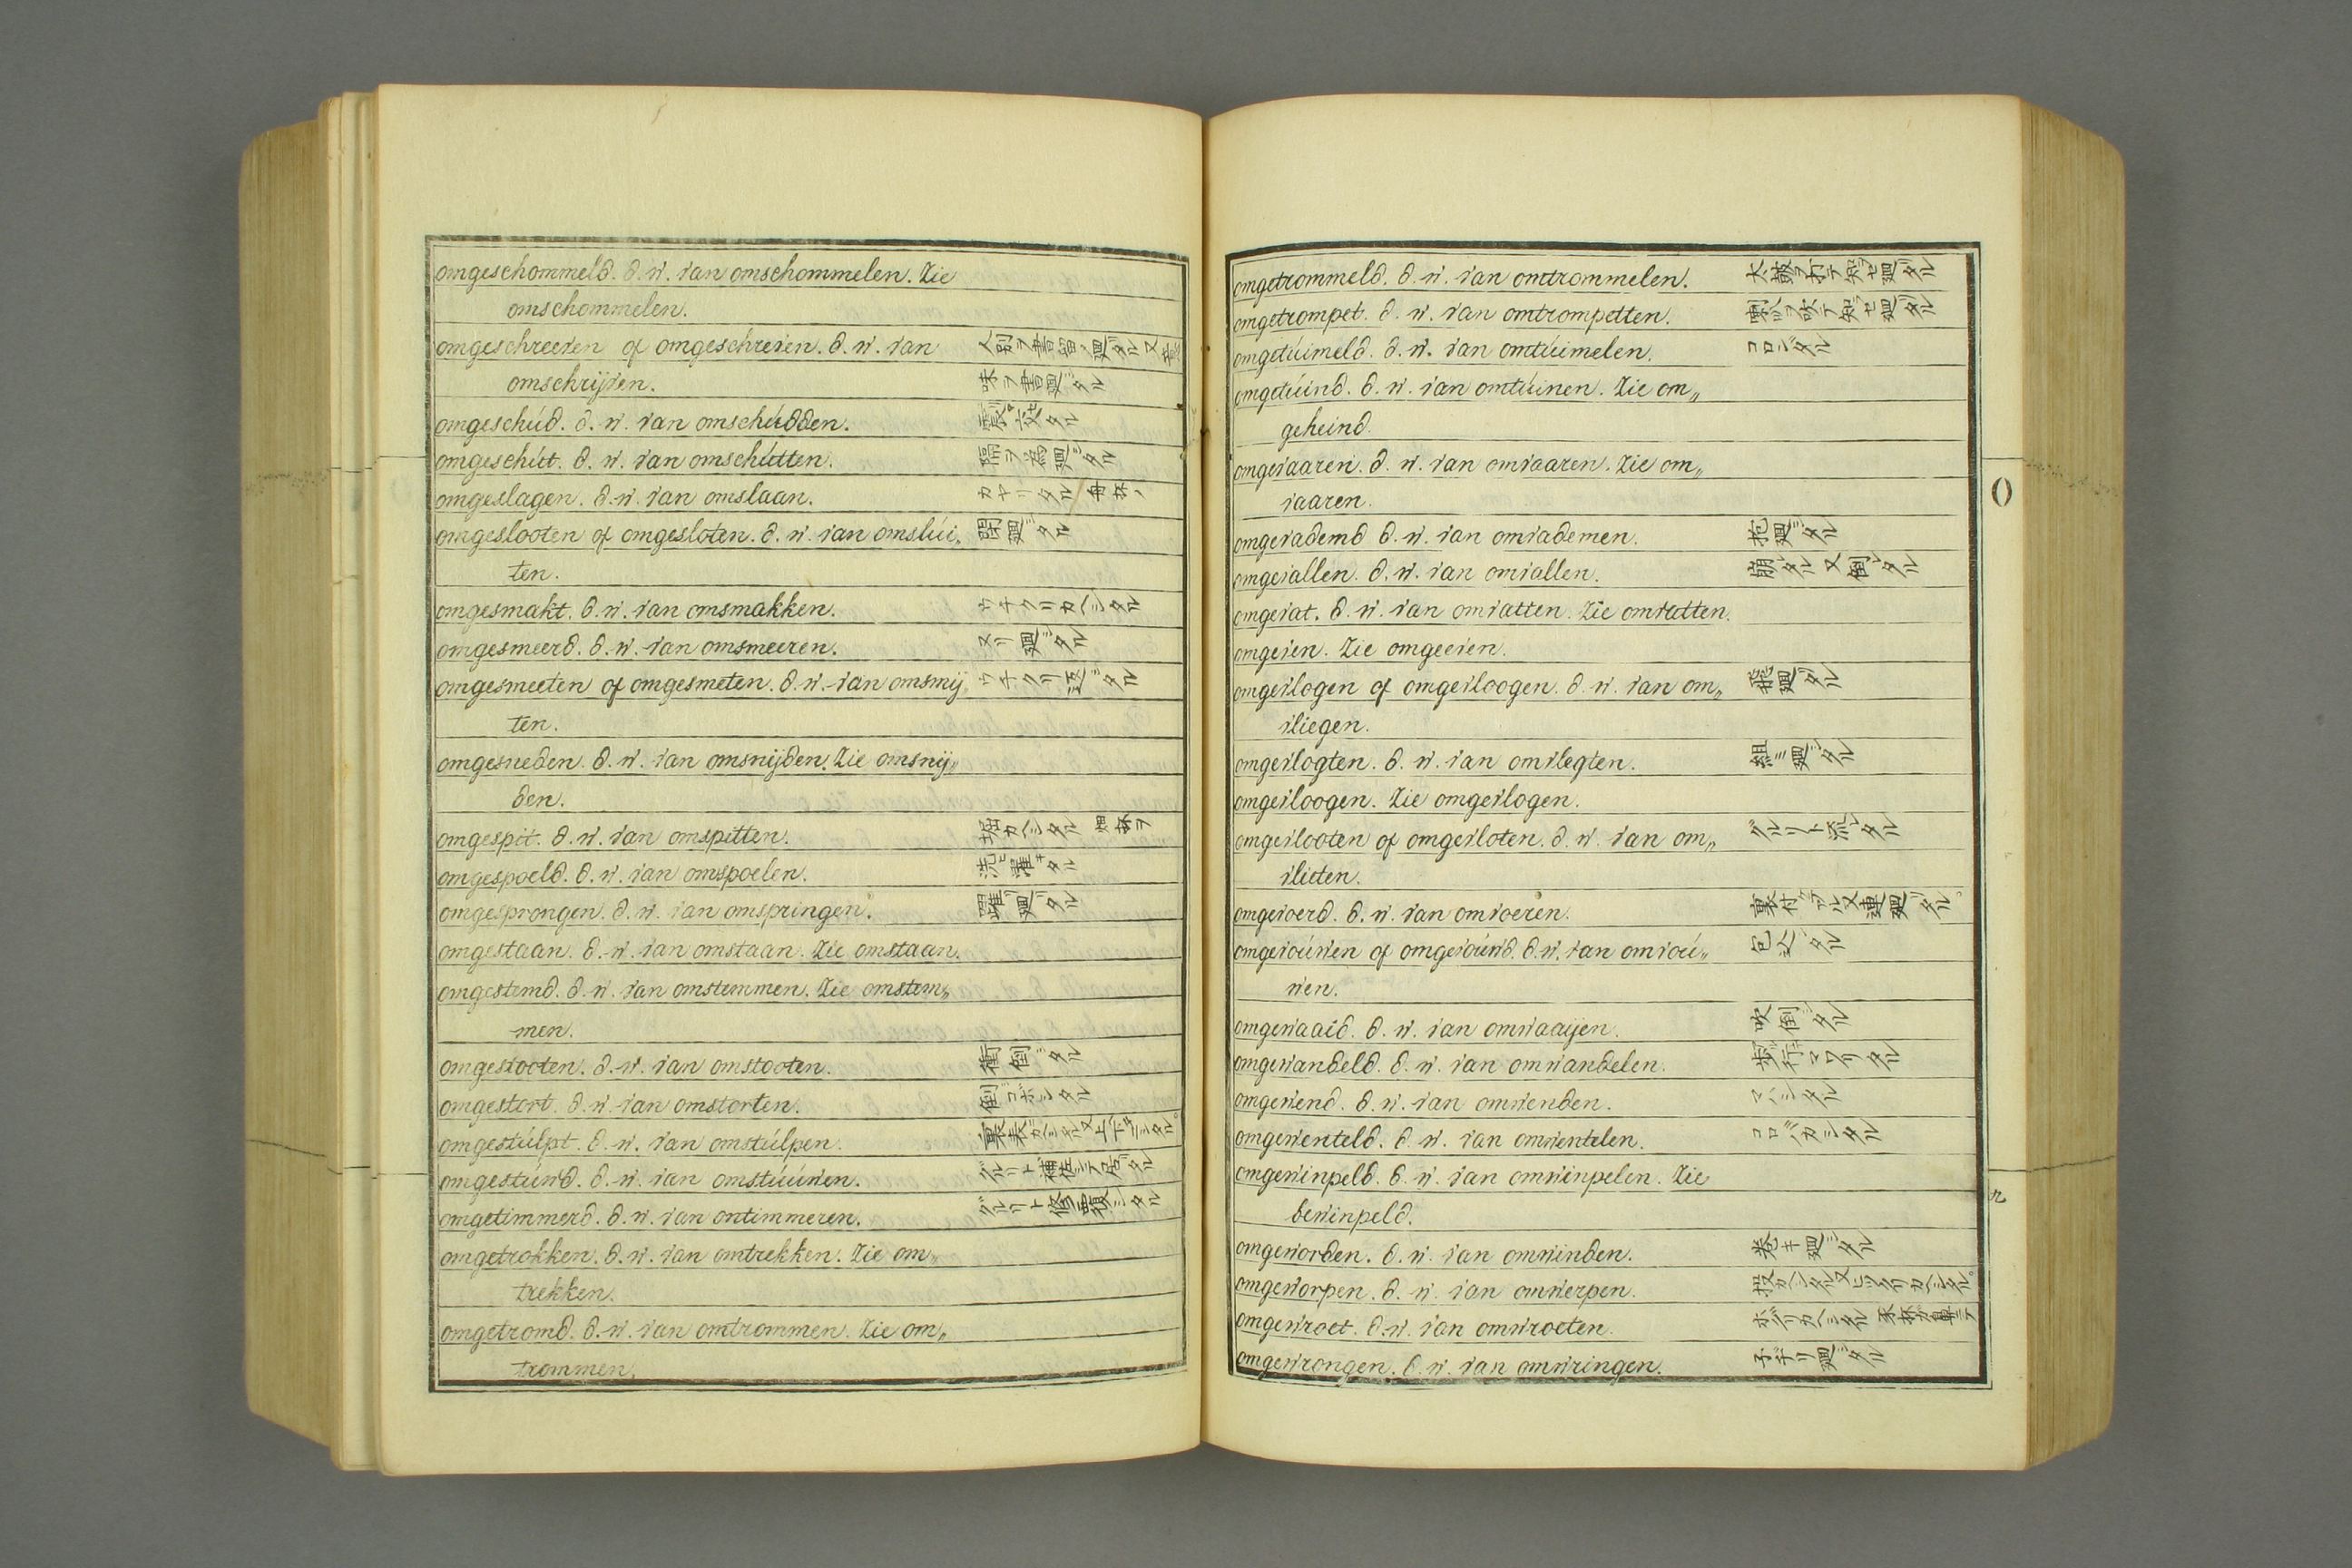 omgeschommeld. d. w. van omschommelen. Zie
omschommelen.
omgeschreeven of omgeschreven. d. w. van
omschrijven. 味ヲ書廻シタル
omgeschúd. d. w. van omschúdden.
omgeschút. d. w. van omschútten. 隔ヲ為廻シタル
omgeslagen. d. w. van omslaan. カヤリタル 舟杯ノ
omgeslooten of omgesloten. d. w. van omslúi„ 閉廻シタル
ten.
omgesmakt. d. w. van omsmakken. ウチクリカヘシタル
omgesmeerd. d. w. van omsmeeren. ヌリ廻シタル
omgesmeeten of omgesmeten. d. w. van omsmij„ ウチクリ返シタル
ten.
omgesneden. d. w. van omsnijden. Zie omsnij„
den.
omgespit. d. w. van omspitten. 堀カヘシタル 畑杯ヲ
omgespoeld. d. w. van omspoelen. 洗濯
omgesprongen. d. w. van omspringen. 躍廻リタル
omgestaan. d. w. van omstaan. Zie omstaan.
omgestemd. d. w. van omstemmen. Zie omstem„
men.
omgestooten. d. w. van omstooten. 衝倒シタル
omgestort. d. w. van omstorten. 倒コボシタル
omgestúlpt. d. w. van omstúlpen.
omgestúwd. d. w. van omstúúwen.
omgetimmerd. d. w. van ontimmeren. グルリト修覆シタル
omgetrokken. d. w. van omtrekken. Zie om„
trekken.
omgetromd. d. w. van omtrommen. Zie om„
trommen.
omgetrommeld. d. w. van omtrommelen. 太鼓ヲ打テ知ラセ廻リタル
omgetrompet. d. w. van omtrompetten. 喇叭ヲ吹テ知ラセ廻リタル
omgetúimeld. d. w. van omtúimelen. コロンダル
omgetúind. d. w. van omtúinen. Zie om„
geheind.
omgevaaren. d. w. van omvaaren. Zie om„
vaaren.
omgevademd d. w. van omvademen. 抱廻シタル
omgevallen. d. w. van omvallen. 崩レタル又倒レタル
omgevat. d. w. van omvatten. Zie omvatten.
omgeven. Zie omgeeven.
omgevlogen of omgevloogen. d. w. van om„ 飛廻リタル
vliegen.
omgevlogten. d. w. van omvlegten. 組ミ廻シタル
omgevloogen. Zie omgevlogen.
omgevlooten of omgevloten. d. w. van om„ グルリト流レタル
vlieten.
omgevoerd. d. w. van omvoeren. 裏付ケタル又連廻リタル。
omgevoúwen of omgevoúwd. d. w. van omvoú„ 包ミタル
wen.
omgewaaid. d. w. van omwaaijen. 吹倒シタル
omgewandeld. d. w. van omwandelen. 歩行マワリタル
omgewend. d. w. van omwenden.
omgewenteld. d. w. van omwentelen. コロバカシタル
omgewinpeld. d. w. van omwinpelen. Zie
bewinpeld.
omgeworden. d. w. van omwinden. 巻キ廻シタル
omgeworpen. d. w. van omwerpen.
omgewroet. d. w. van omwroeten.
omgewrongen. d. w. van omwringen. 子ヂリ廻シタル
O